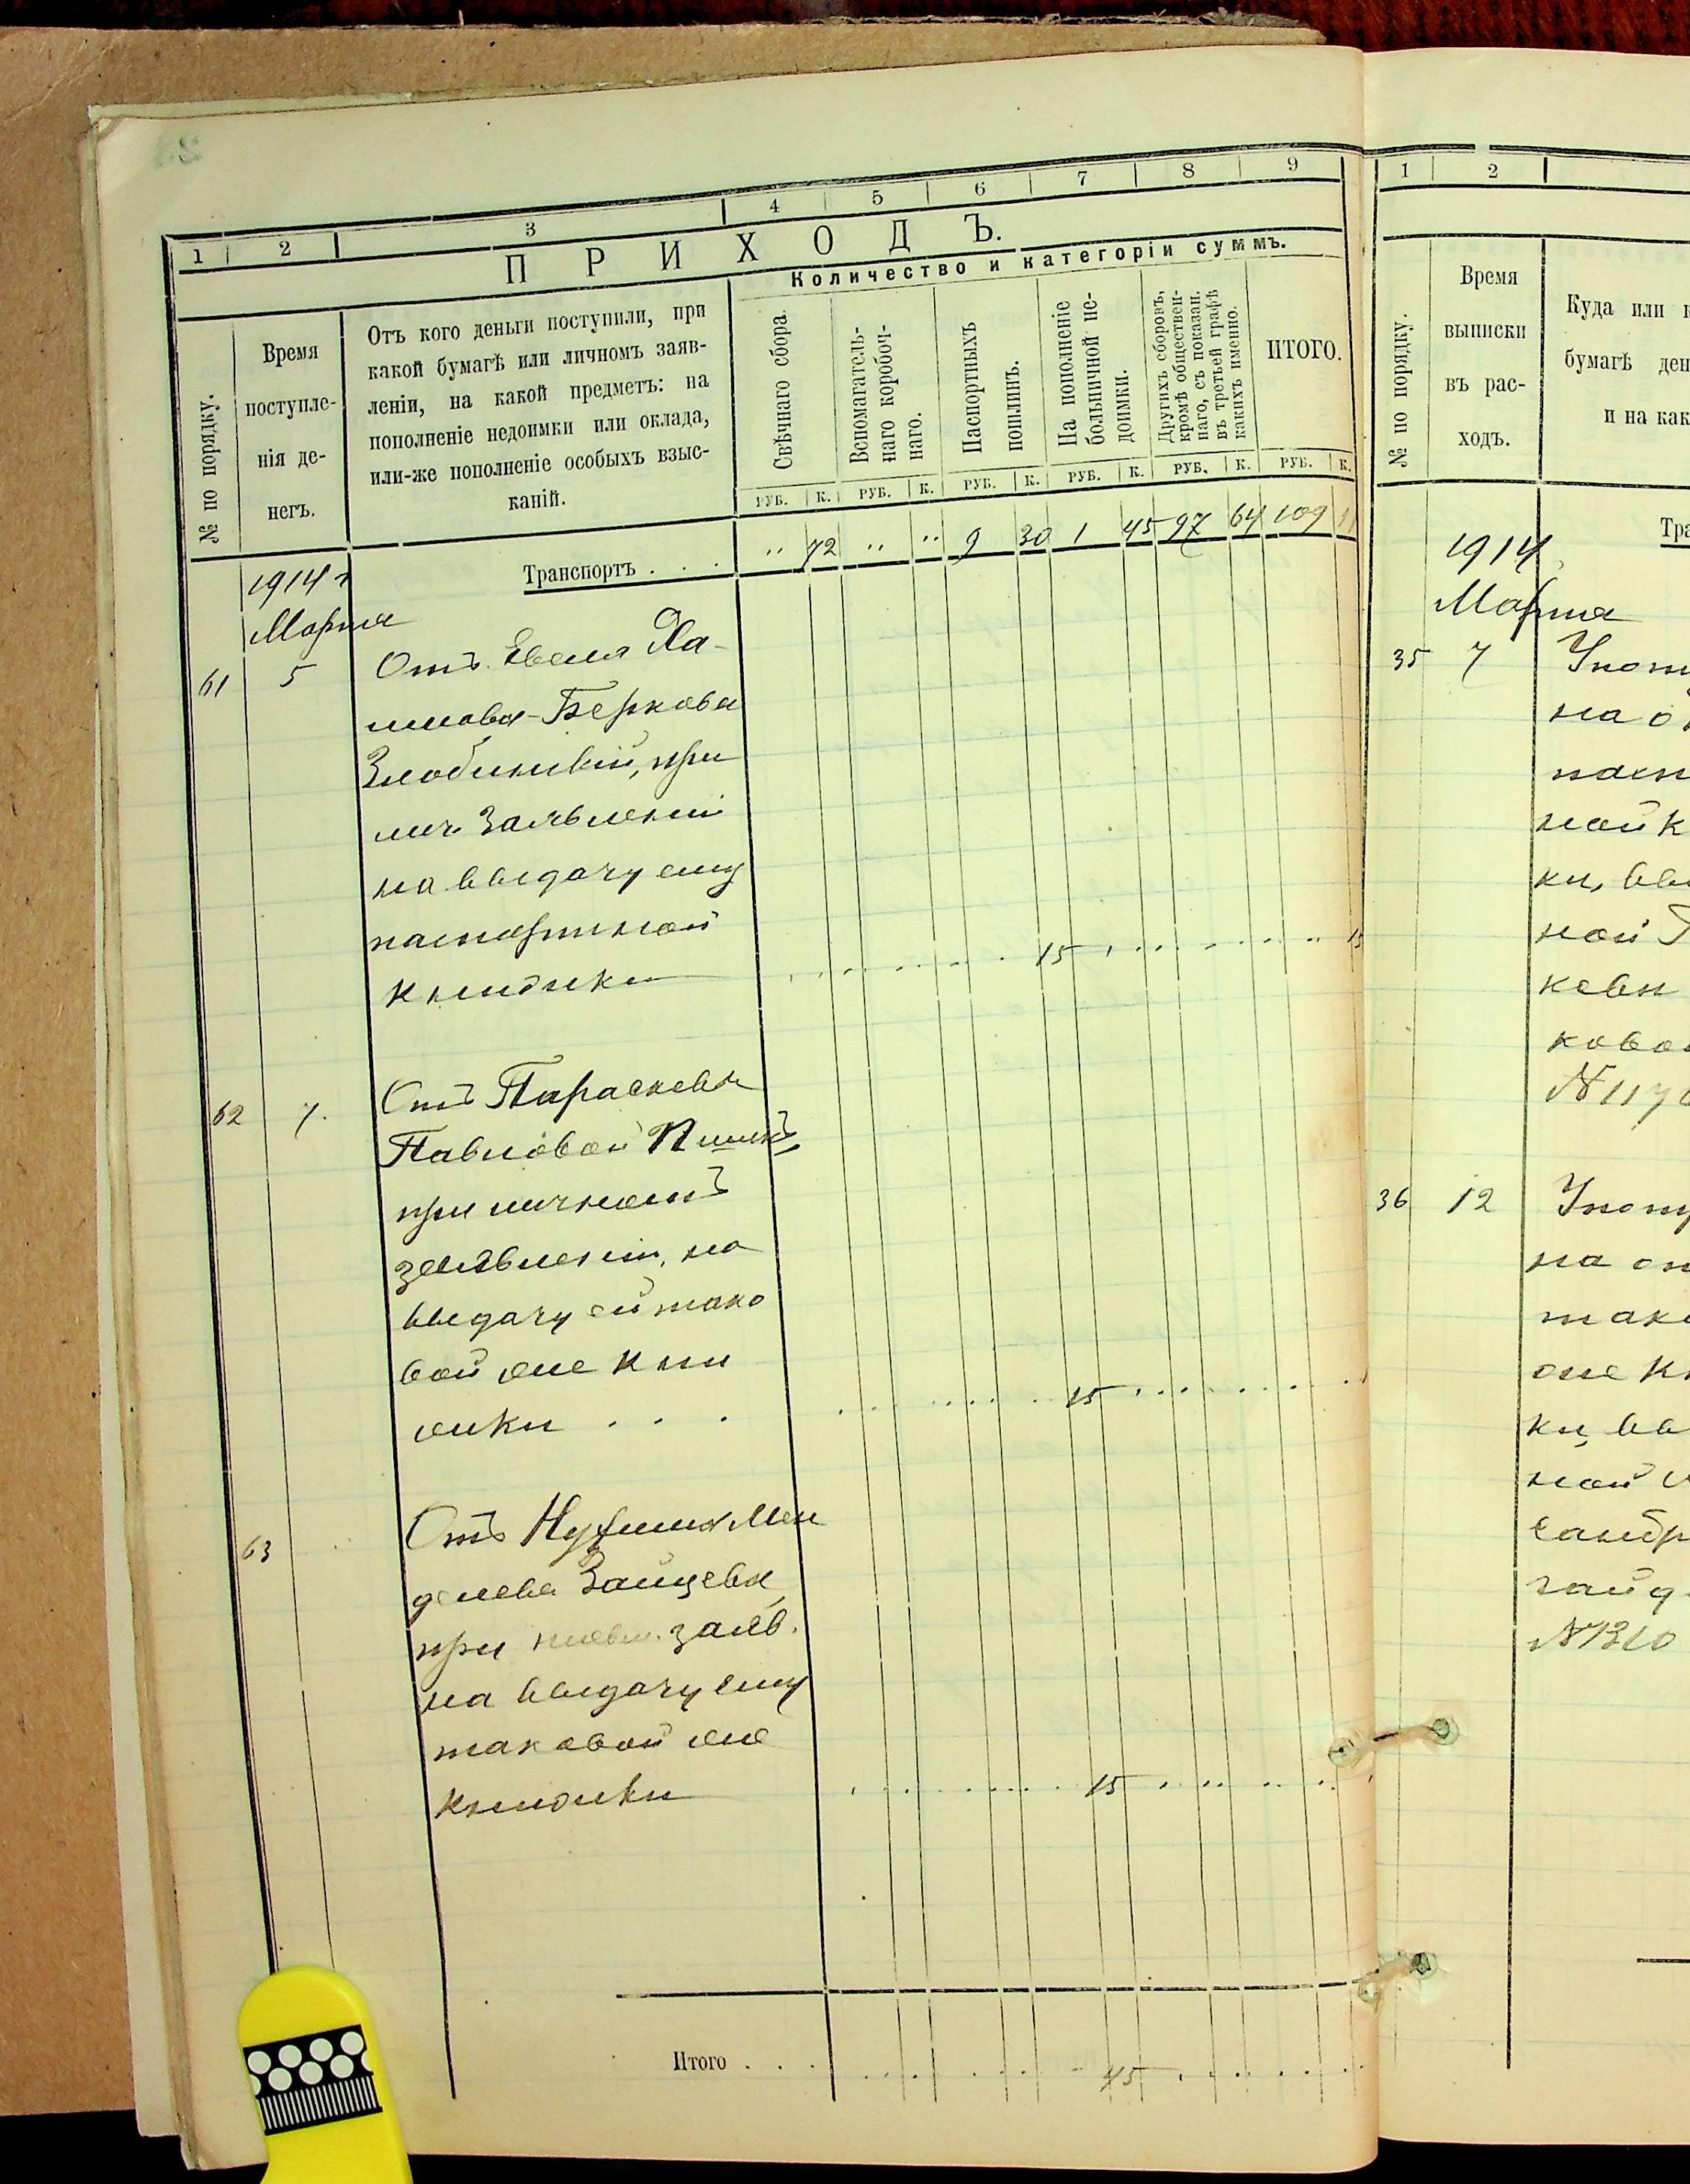 1 2 3 4 5 6 7 8 9
ПРИХОДЪ.
Количество и категоріи суммъ.
№ по порядку.
Время
поступле-
нія де-
негъ.
Отъ кого деньги поступили, при
какой бумагѣ или личномъ заяв-
леніи, на какой предметъ: на
пополненіе недоимки или оклада,
или-же пополненіе особыхъ взыс-
каній.
Свѣчнаго сбора.
Вспомагатель-
наго коробоч-
наго.
Паспортныхъ
пошлинъ.
На пополненіе
больничной не-
доимки.
Другихъ сборовъ,
кромѣ обществен-
наго, съ показан.
въ третьей графѣ
какихъ именно.
ИТОГО.
РУБ. К. РУБ. К. РУБ. К. РУБ. К. РУБ. К. РУБ. К.
Транспортъ . . . " 72 " " 9 30 1 45 97 64 109 11
1914 г
Марта
61 5 Отъ Евеля Ха-
имова-Беркова
при
лич. заявленіи
на выдачу ему
паспортной
книжки 15 15
62 7. Отъ Параскевы
Павловой
при личномъ
заявленіи, на
выдачу ей тако
вой же кни
жки . . . 15
63 Отъ Мен
делева Зайцева,
при заяв.
на выдачу ему
таковой же
книжки 15
Итого . . . 45
1 2
№ по порядку.
Время
выписки
въ рас-
ходъ.
Куда или к
бумагѣ ден
и на как
Тра
1914
Марта
35 7 Упот
на о
пасп
ной к
ки, вы
ной П
кевы
ково
№ 117
36 12 Упот
на оп
тако
же кн
ки, вы
ной
сандр
зайд
№ 1310